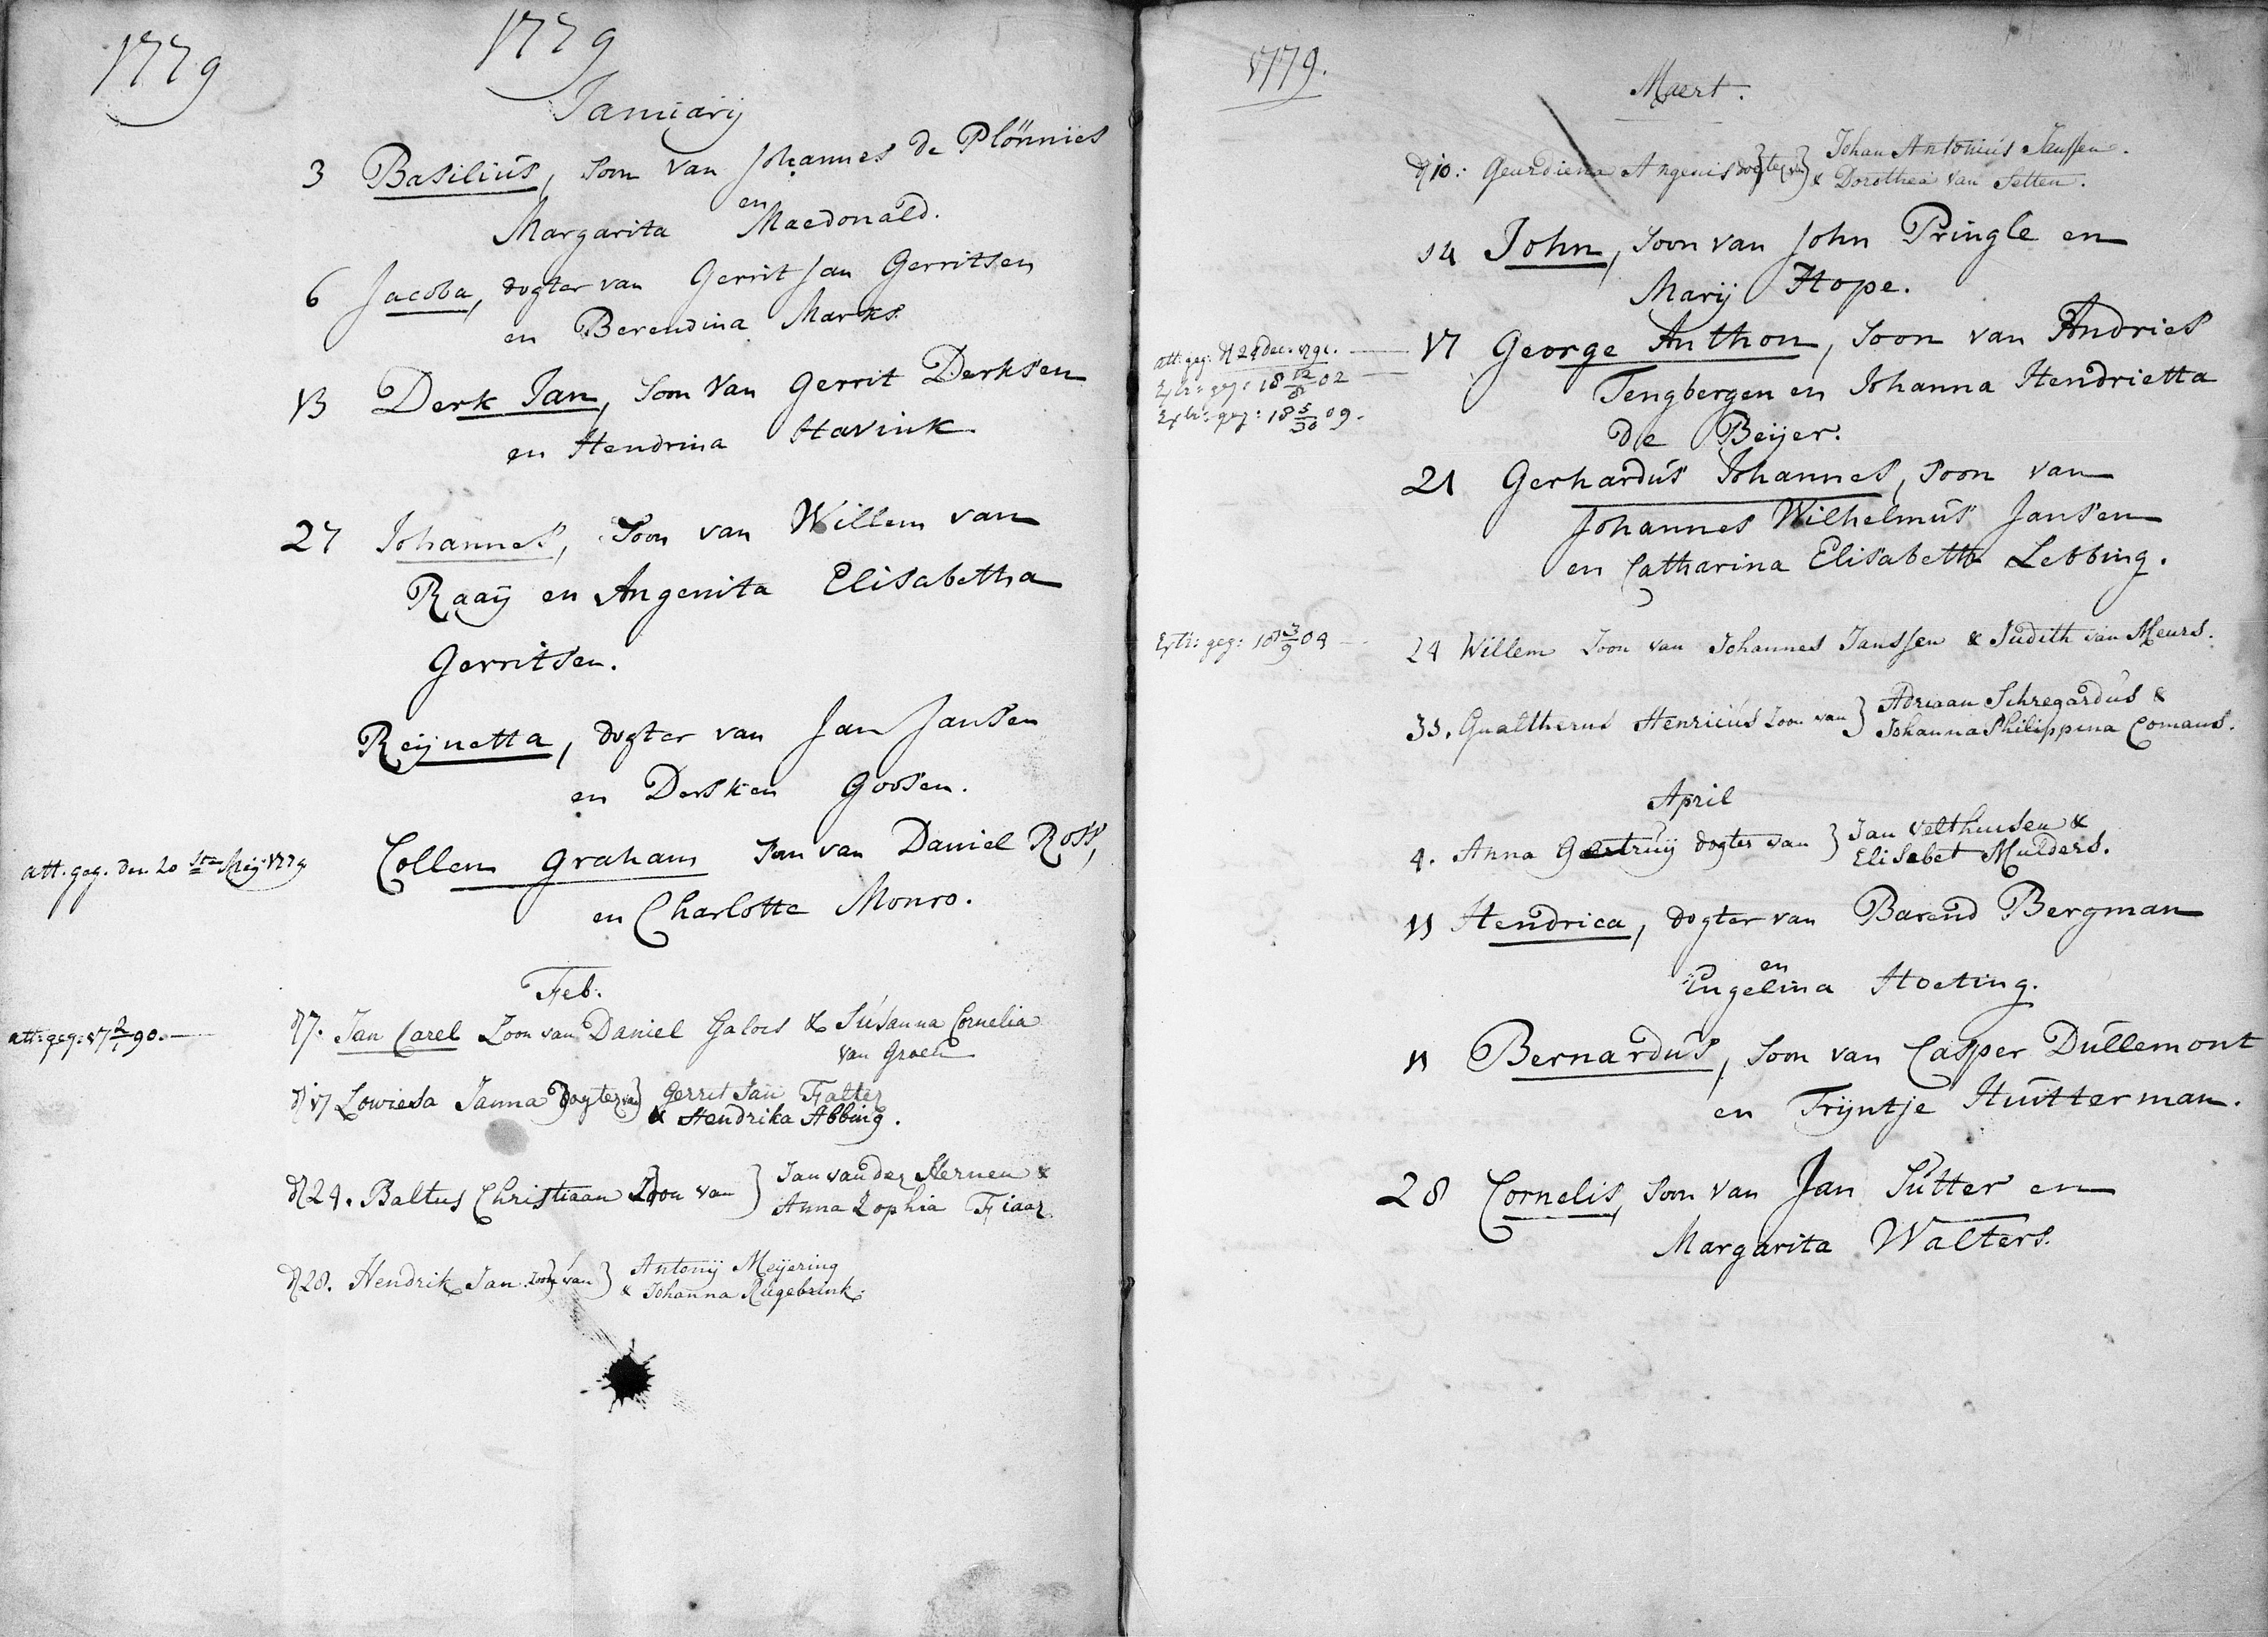 1779
1779
Januarij
3 Basilius, Soon van Johannes de Plönnies
en
Margarita Macdonald.
6 Jacoba, dogter van Gerrit Jan Gerritsen
en Berendina Marks.
13 Derk Jan, Soon van Gerrit Derksen
en Hendrina Stavink
27 Johannes, Soon van Willem van
Raaij en Angenita Elisabetha
Gerritsen.
Reijnetta, dogter van Jan Jansen
en Dersken Goosen.
att. geg. den 20 sten Meij 1779
Collen Graham Son van Daniel Ross,
en Charlotte Monro.
Feb.
att: geg: 17 2/1 90.
d 7. Jan Carel Zoon van Daniel Galois & Susanna Cornelia
van Groen
d 17 Lowiesa Janna Dogter van } Gerret Jan Falter
& Hendrika Abbing.
d 24. Baltus Christiaan Zoon van } Jan van der Sternen &
Anna Sophia Fiaar
d 28. Hendrik Jan Zoon van } Antonij Meijering
& Johanna Rugebrink.
1779.
Maert.
d 10: Geurdiena Angenis dogter van } Johan Antonius Janssen.
& Dorothea van Setten.
14 John, Soon van John Pringle en
Marij Hope.
att: geg: d 24 Dec. 1791.
Extr: geg: 18 12/8 02
Extr: geg: 18 5/30 09.
17 George Anthon, Soon van Andries
Tengbergen en Johanna Hendrietta
de Beijer.
21 Gerhardus Johannes, Soon van
Johannes Wilhelmus Jansen
en Catharina Elisabeth Lebbing.
Extr: geg: 18 3/9 04
24 Willem Zoon van Johannes Janssen & Judith van Meurs.
31. Gualtherus Henricus Zoon van } Adriaan Schregardus &
Johanna Philippina Comans.
April
4. Anna Geertruij dogter van } Jan Velthuisen &
Elisabet Mulders.
11 Hendrica, dogter van Barend Bergman
en
Engelina Hoeting.
11 Bernardus, Soon van Casper Dullemont
en Trijntje Huitterman.
28 Cornelis, Soon van Jan Sutter en
Margarita Walters.